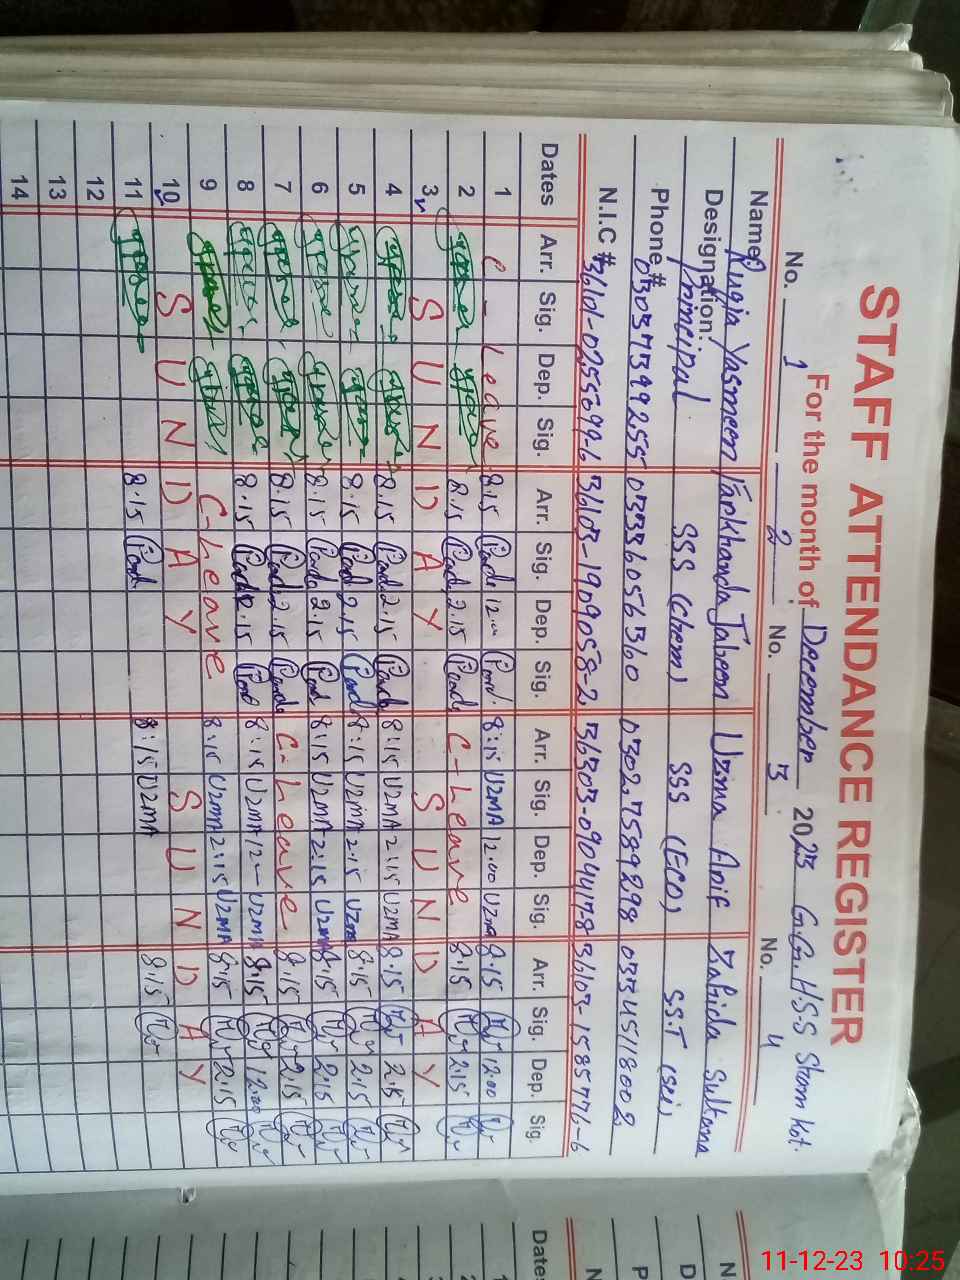 STAFF ATTENDANCE REGISTER
For the month of December 2023 G.G.H.S.S Sham kot.
No. 1 2 No. 3 No. 4
Name: Ruqia Yasmeen Farkhanda Jabeen Uzma Arif Zahida Sultana
Designation: Principal SSS (Chem) SSS (ECO) S.S.T (Sci)
Phone # 03037399255 03336056360 03027589298 03345118002
N.I.C # 36101-0255699-6 36103-1909058-2 36303-0904417-8 36103-1585776-6
Dates Arr. Sig. Dep. Sig. Arr. Sig. Dep. Sig. Arr. Sig. Dep. Sig. Arr. Sig. Dep. Sig.
1 C - Leave 8.15 12.00 8:15 UZMA 12.00 UZMA 8.15 12.00
2 8.15 2.15 C-Leave 8.15 2.15
3 S U N D A Y S U N D A Y
4 8.15 2.15 8:15 UZMA 2:15 UZMA 8.15 2.15
5 8.15 2.15 8:15 UZMA 2:15 UZMA 8.15 2.15
6 8.15 2.15 8:15 UZMA 2:15 UZMA 8.15 2.15
7 8.15 2.15 C-Leave 8.15 2.15
8 8.15 2.15 8:15 UZMA 12 - UZMA 8.15 12.00
9 C-Leave 8:15 UZMA 2:15 UZMA 8.15 2.15
10 S U N D A Y S U N D A Y
11 8.15 8:15 UZMA 8.15
12
13
14
Dates
11-12-23 10:25